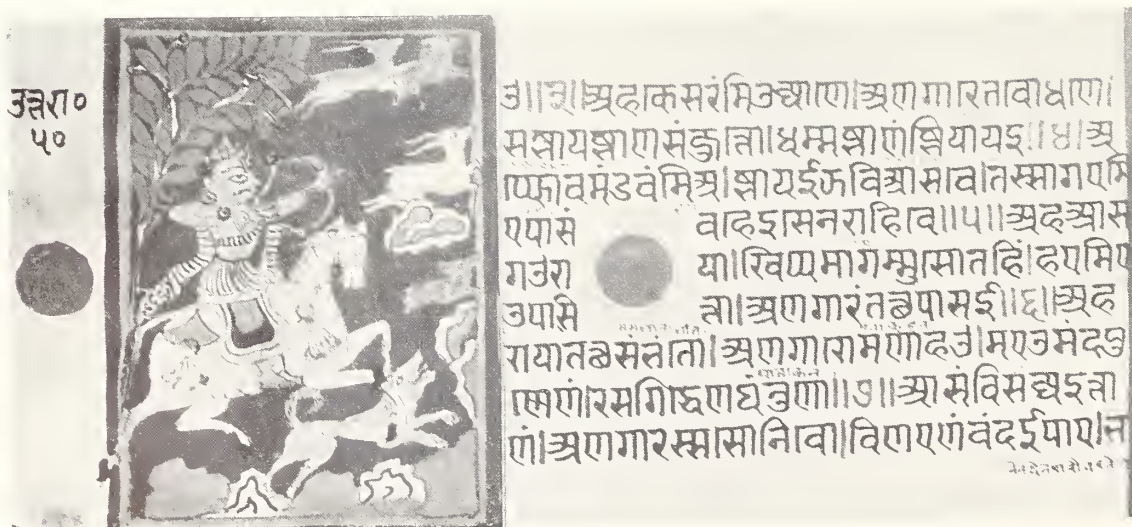 उत्तरा०
५०
ए॥३॥अह केसरंमि उज्जाणे।अणगारे तवोधणे।
सज्झायज्झाणसंजुत्ते।धम्मज्झाणं झियायइ॥४॥अ
प्फोवमंडवंमि अ।झायई झविआसवे।तस्सागए मि
ए पासं वहेइ से नराहिवे॥५॥अह आस
गउ रा या।खिप्पमागम्म सो तहिं।हए मिए
उ पासि त्ता।अणगारं तत्थ पासई॥६॥अह
राया तत्थ संभंतो।अणगारो मणाहउ।मए उ मंदपु
ण्णेणं।रसगिद्धेण घंतुणा॥७॥आसं विसज्जइत्ता
णं।अणगारस्स सो निवो।विणएणं वंदई पाए।